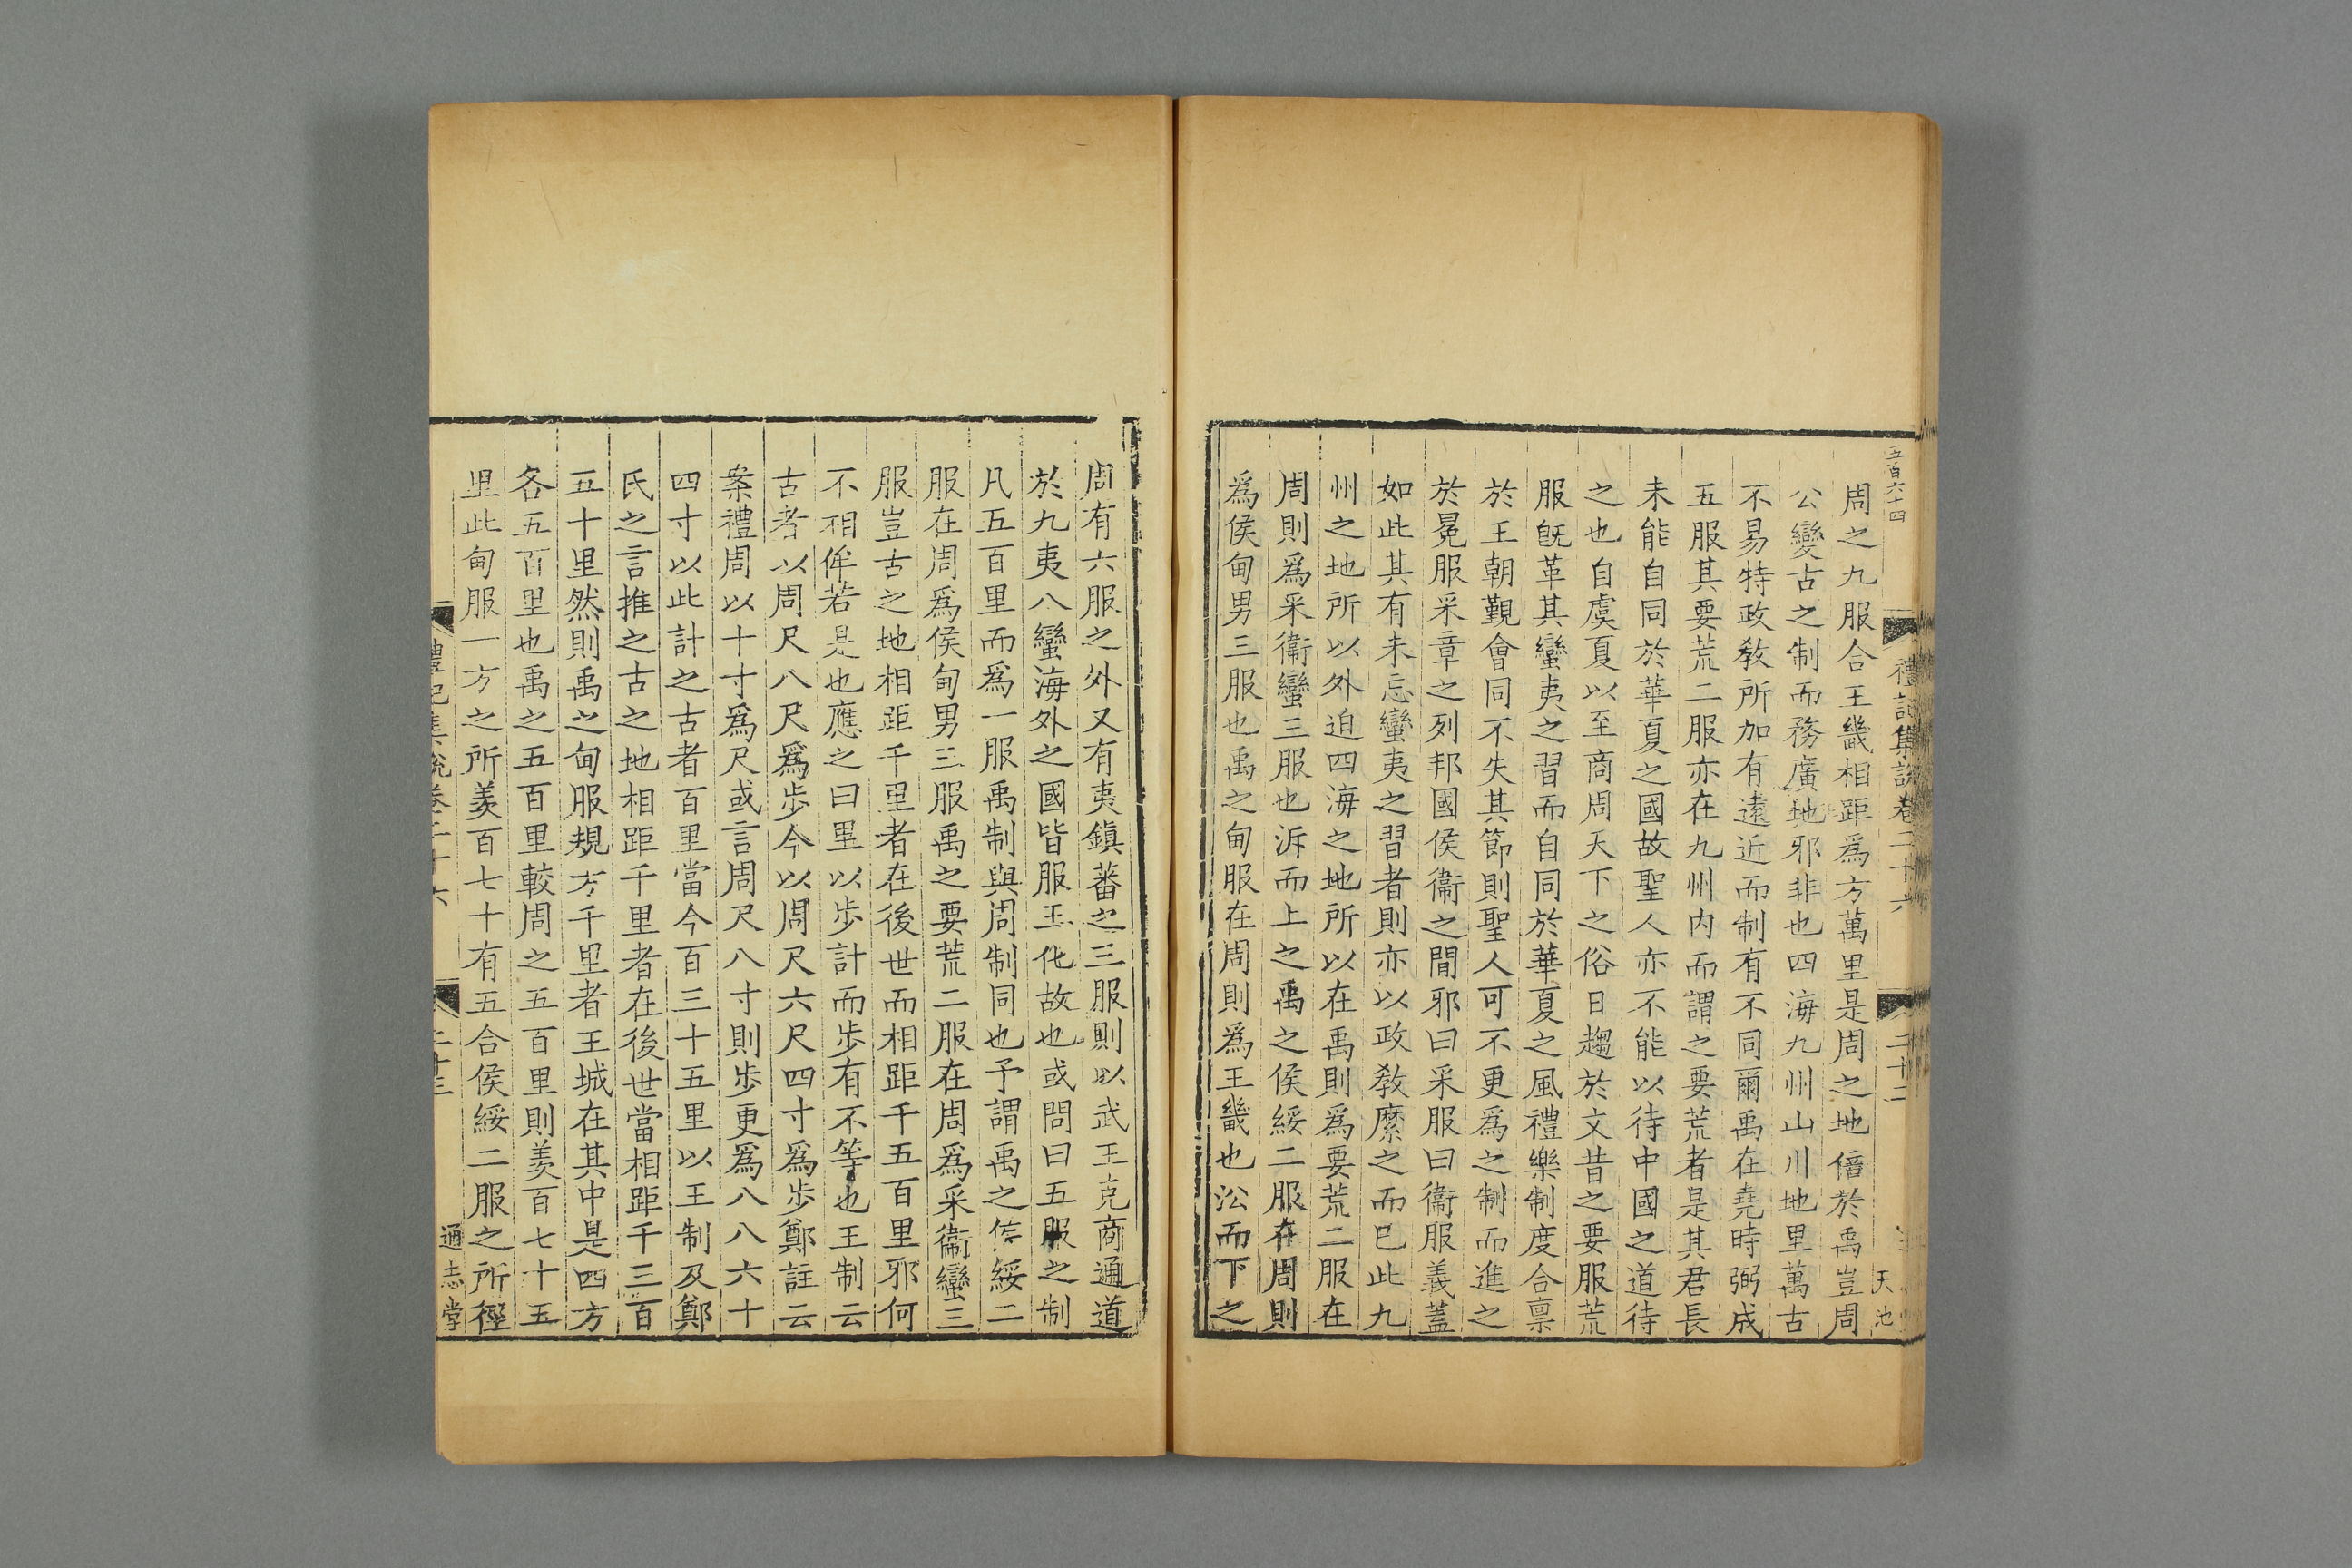 五百六十四
禮記集說卷二十六
二十二
天池
周之九服合王畿相距爲方萬里是周之地倍於禹豈周
公變古之制而務廣地邪非也四海九州山川地里萬古
不易特政教所加有遠近而制有不同爾禹在堯時弼成
五服其要荒二服亦在九州内而謂之要荒者是其君長
未能自同於華夏之國故聖人亦不能以待中國之道待
之也自虞夏以至商周天下之俗日趨於文昔之要服荒
服旣革其蠻夷之習而自同於華夏之風禮樂制度合禀
於王朝覲會同不失其節則聖人可不更爲之制而進之
於冕服采章之列邦國侯衞之閒邪曰采服曰衞服義蓋
如此其有未忘蠻夷之習者則亦以政教縻之而巳此九
州之地所以外迫四海之地所以在禹則爲要荒二服在
周則爲采衞蠻三服也泝而上之禹之侯綏二服在周則
爲侯甸男三服也禹之甸服在周則爲王畿也㳂而下之
周有六服之外又有夷鎭蕃之三服則以武王克商通道
於九夷八蠻海外之國皆服王化故也或問曰五服之制
凡五百里而爲一服禹制與周制同也予謂禹之侯綏二
服在周爲侯甸男三服禹之要荒二服在周爲采衞蠻三
服豈古之地相距千里者在後世而相距千五百里邪何
不相侔若是也應之曰里以步計而步有不等也王制云
古者以周尺八尺爲步今以周尺六尺四寸爲步鄭註云
案禮周以十寸爲尺或言周尺八寸則步更爲八八六十
四寸以此計之古者百里當今百三十五里以王制及鄭
氏之言推之古之地相距千里者在後世當相距千三百
五十里然則禹之甸服規方千里者王城在其中是四方
各五百里也禹之五百里較周之五百里則羨百七十五
里此甸服一方之所羨百七十有五合侯綏二服之所徑
禮記集說卷二十六
二十三
通志堂